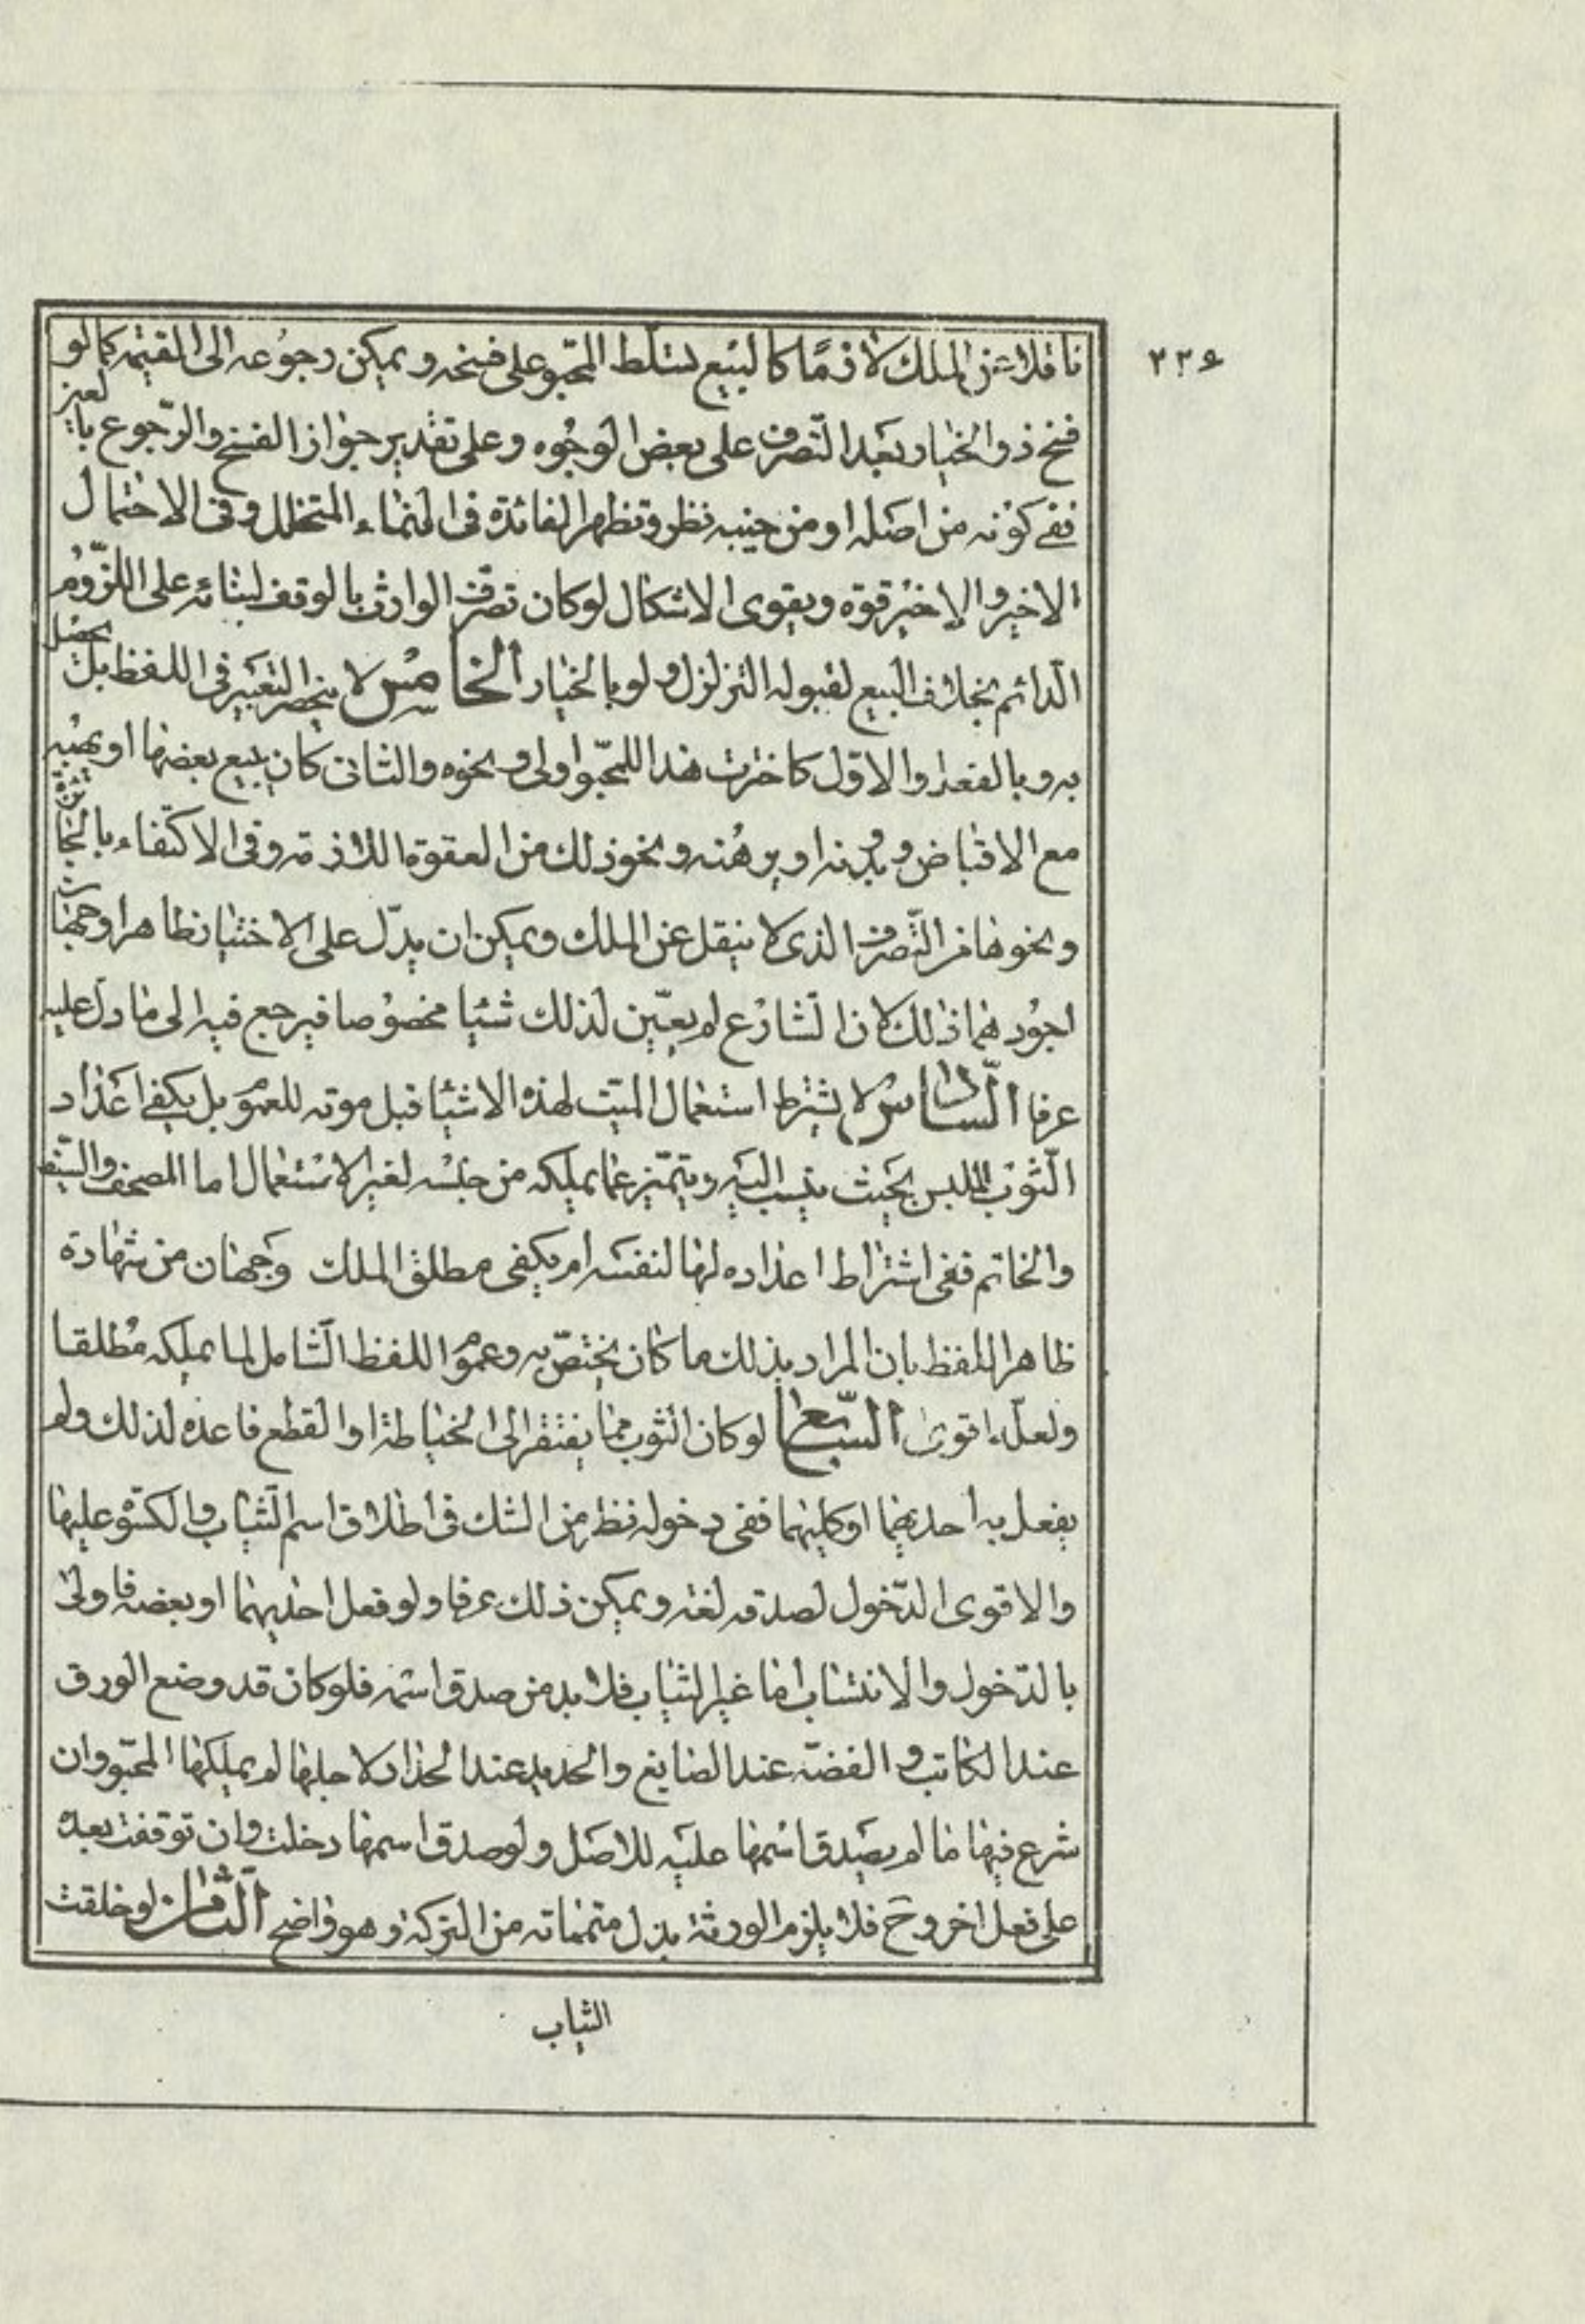 ٢٢٦
ناقلا عن الملك لازمًا كالبيع تسلّط المحبّو على فسخه ويمكن رجوعه الى القيمة كما لو
فسخ ذو الخيار بعد التّصرف على بعض الوجوه وعلى تقدير جواز الفسخ والرّجوع بالعين
ففى كونه من اصله او من حينه نظر وتظهر الفائدة فى النماء المتخلل وفى الاحتمال
الاخير والاخير قوة ويقوى الاشكال لو كان تصرّف الوارث بالوقف لبنائه على اللزّوم
الدائم بخلاف البيع لقبوله التزلزل ولو بالخيار الخامس لا ينحصر التعبير فى اللفظ بل يحصل
به وبالفعل والاول كاخترت هذا للمحبّو اولى ونحوه والثانى كان يبيع بعضها او يهبه
مع الاقباض و او يرهنه ونحو ذلك من العقود اللازمة وفى الاكتفاء بالتجا
ونحوها من التّصرف الذى لا ينقل عن الملك ويمكن ان يدلّ على الاختيار ظاهرا وجهان
اجودهما ذلك لان الشارع لم يعيّن لذلك شيئا مخصوصا فيرجع فيه الى ما دل عليه
عرفا السادس لا يشترط استعمال الميت لهذه الاشيا قبل موته للعمو بل يكفى اعداد
الثوب للبس بحيث ينسب اليه ويتميّز عما يملكه من جنسه لغير الاستعمال اما المصحف والسيف
والخاتم ففى اشتراط اعداده لها لنفسه ام يكفى مطلق الملك وجهان من شهادة
ظاهر اللفظ بان المراد بذلك ما كان يختصّ به وعمو اللفظ الشامل لما يملكه مطلقا
ولعلّه اقوى السّابع لو كان الثوب مما يفتقر الى الخياطة او القطع فاعده لذلك ولم
يفعل به احديهما او كليهما ففى دخوله نظر من الشك فى اطلاق اسم الثياب والكسوة عليها
والاقوى الدّخول لصدقه لغة ويمكن ذلك عرفا ولو فعل احديهما او بعضها فاولى
بالدّخول والانتساب اما غير الثياب فلا بد من صدق اسمه فلو كان قد وضع الورق
عند الكاتب والفضّة عند الصايغ والحديد عند الحداد لاجلها لم يملكها المحبّو وان
شرع فيها ما لم يصدق اسمها عليه للاصل ولو صدق اسمها دخلت وان توقفت بعده
على فعل اخر وح فلا يلزم الورثة بذل متمماته من التركة وهو واضح الثامن لو خلقت
الثياب